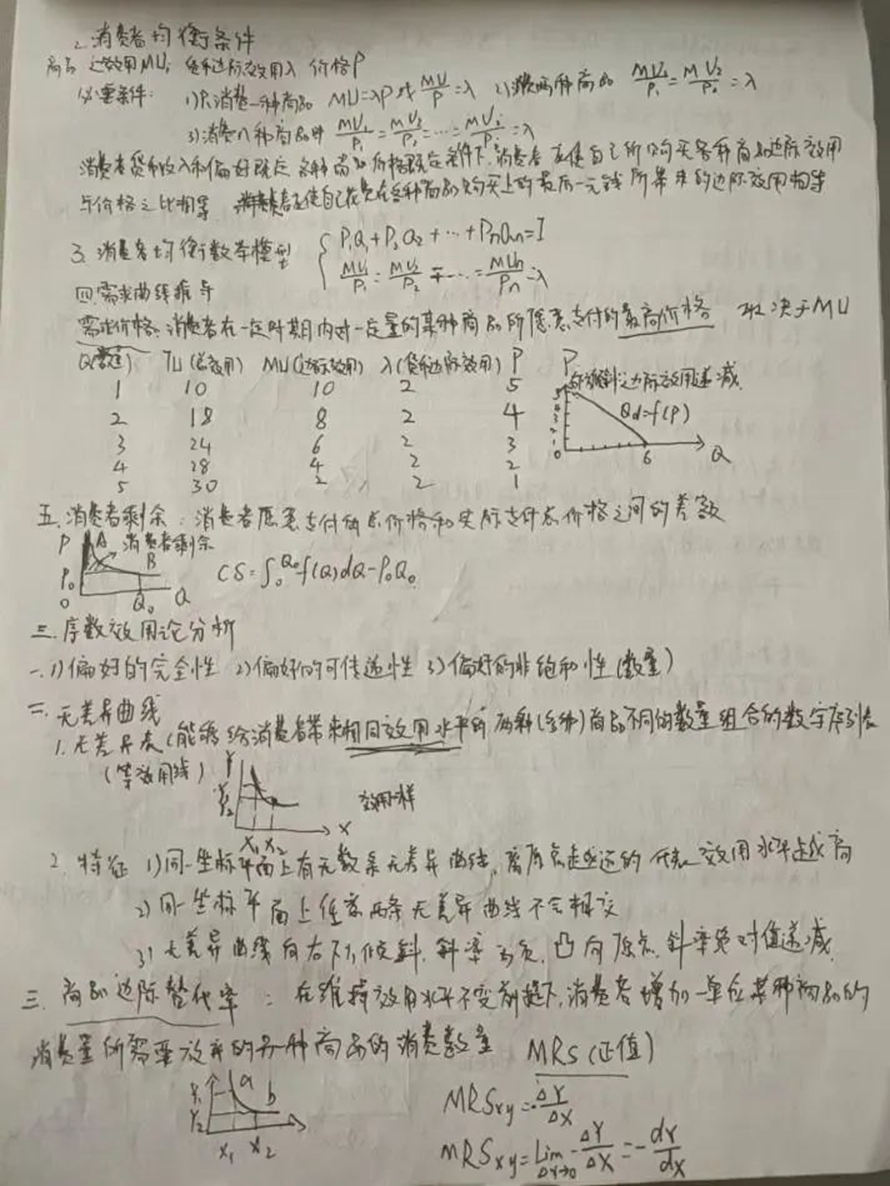 2. 消费者均衡条件
商品 边效用MU; 货币边际效用λ 价格P
必要条件: 1)只消费一种商品 MU=λP 或 MU/P=λ 2)消费两种商品 MU₁/P₁=MU₂/P₂=λ
3)消费n种商品时 MU₁/P₁=MU₂/P₂=…=MUᵢ/Pᵢ=λ
消费者货币收入和偏好既定 各种商品价格既定条件下, 消费者应使自己所购买各种商品边际效用
与价格之比相等 消费者应使自己花费在各种商品购买上的最后一元钱所带来的边际效用相等
3. 消费者均衡数学模型 { P₁Q₁+P₂Q₂+…+PnQn=I
MU₁/P₁=MU₂/P₂=…=MUn/Pn=λ
四.需求曲线推导
需求价格: 消费者在一定时期内对一定量的某种商品所愿意支付的最高价格 取决于MU
Q(数量) TU(总效用) MU(边际效用) λ(货币边际效用) P
1 10 10 2 5
2 18 8 2 4
3 24 6 2 3
4 28 4 2 2
5 30 2 2 1
P 向右下倾斜:边际效用递减
5
4
3
2
1
0 6 Q
Qd=f(P)
五.消费者剩余: 消费者愿意支付的总价格和实际支付总价格之间的差数
P A 消费者剩余
P₀ B
0 Q₀ Q
CS=∫₀^Q₀ f(Q)dQ-P₀Q₀
三.序数效用论分析
一.1)偏好的完全性 2)偏好的可传递性 3)偏好的非饱和性(数量)
二.无差异曲线
1.无差异表(能够给消费者带来相同效用水平的两种(多种)商品不同的数量组合的数字序列表
(等效用线)
Y
Y₁
Y₂
X₁ X₂ X
效用一样
2. 特征 1)同一坐标平面上有无数条无差异曲线, 离原点越远的代表效用水平越高
2)同一坐标平面上任意两条无差异曲线不会相交
3)无差异曲线向右下方倾斜, 斜率为负, 凸向原点, 斜率绝对值递减
三.商品边际替代率: 在维持效用水平不变前提下, 消费者增加一单位某种商品的
消费量所需要放弃的另一种商品的消费数量 MRS(正值)
Y₁ a b
Y₂
X₁ X₂
MRSxy=-ΔY/ΔX
MRSxy=Lim ΔX→0 -ΔY/ΔX=-dY/dX